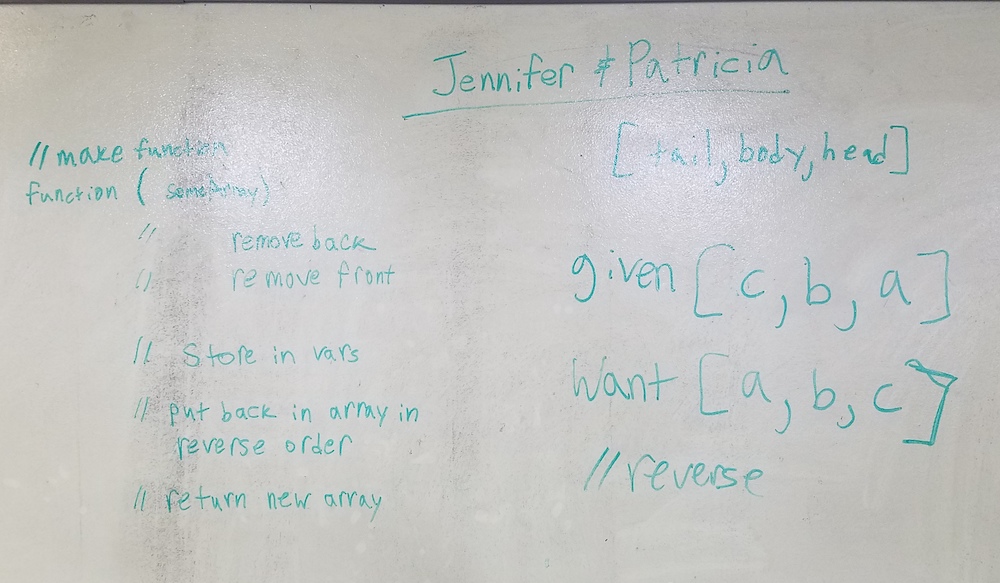 Jennifer & Patricia
// make function
function ( someArray)
// remove back
// remove front
// Store in vars
// put back in array in
reverse order
// return new array
[ tail, body, head ]
given [ c, b, a ]
Want [ a, b, c ]
// reverse